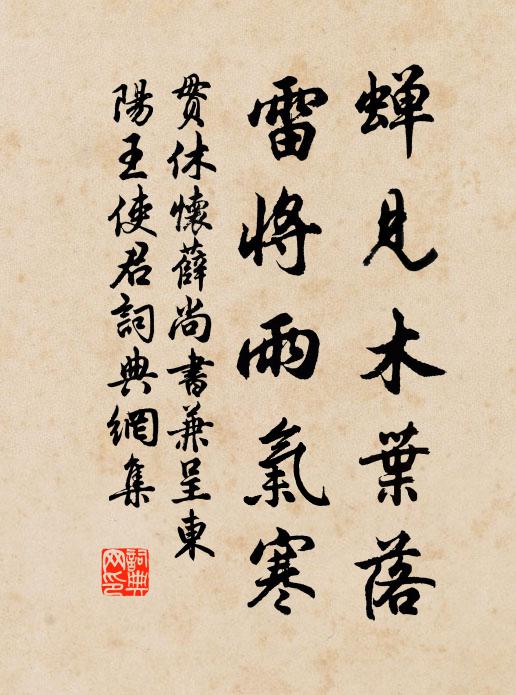 蟬見木葉落
雷將雨氣寒
貫休懷薛尚書兼呈東
陽王使君詞典網集
詞典網印